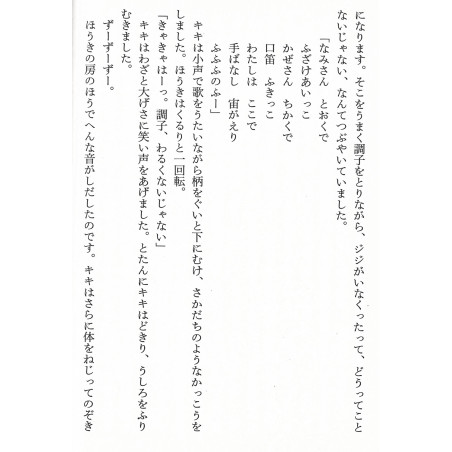 になります。そこをうまく調子をとりながら、ジジがいなくったって、どうってこと
ないじゃない、なんてつぶやいていました。
「なみさん　とおくで
ふざけあいっこ
かぜさん　ちかくで
口笛　ふきっこ
わたしは　ここで
手ばなし　宙がえり
ふふふのふー」
キキは小声で歌をうたいながら柄をぐいと下にむけ、さかだちのようなかっこうを
しました。ほうきはくるりと一回転。
「きゃきゃはーっ。調子、わるくないじゃない」
キキはわざと大げさに笑い声をあげました。とたんにキキはどきり、うしろをふり
むきました。
ずーずーずー。
ほうきの房のほうでへんな音がしだしたのです。キキはさらに体をねじってのぞき